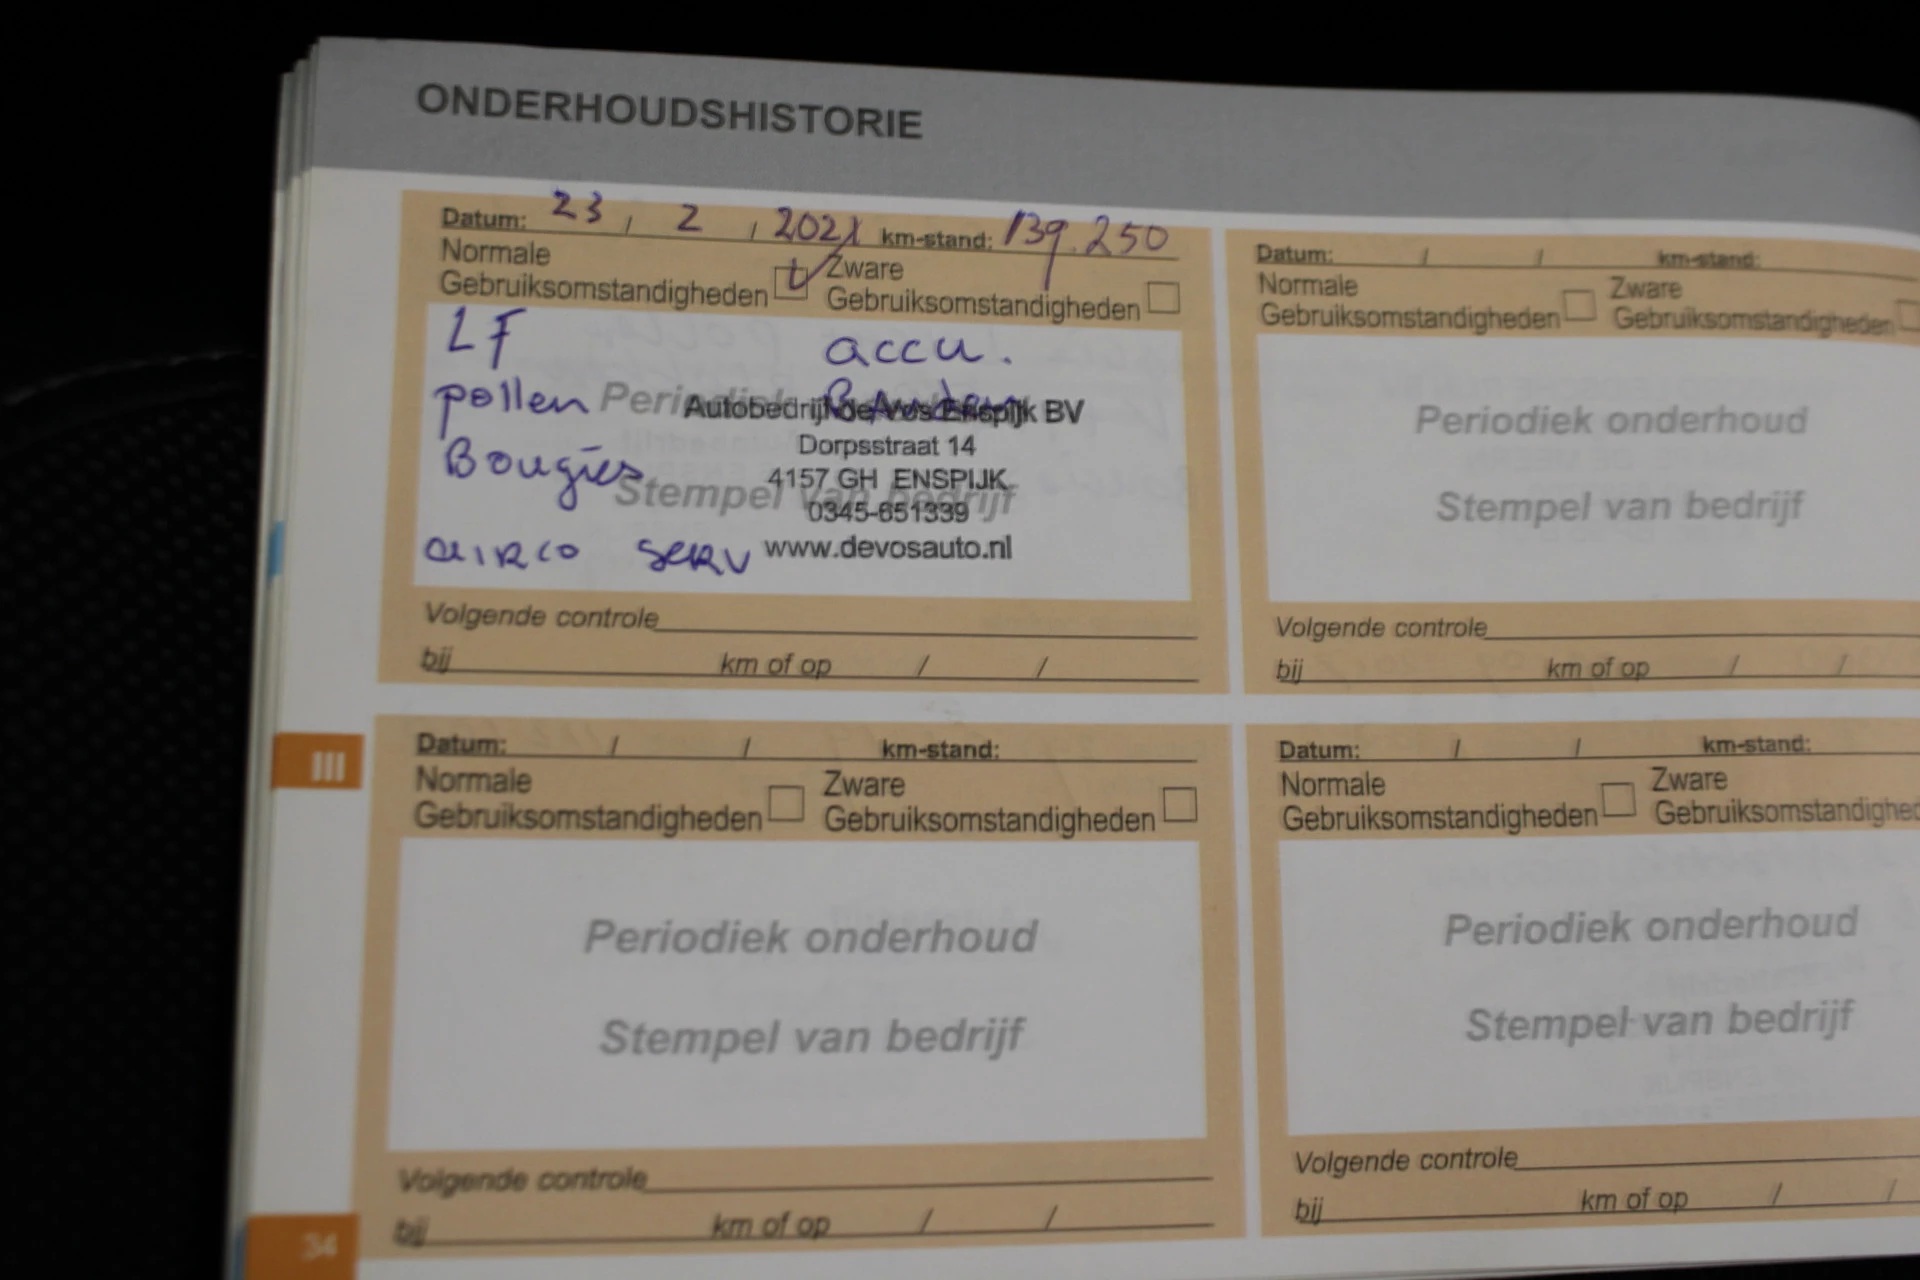 ONDERHOUDSHISTORIE
Datum: 23 / 2 / 2021 km-stand: 139.250
Normale
Gebruiksomstandigheden
Zware
Gebruiksomstandigheden
LF
accu.
pollen
Banden
Bougies
airco serv
Periodiek
Stempel van bedrijf
Autobedrijf de Vos Enspijk BV
Dorpsstraat 14
4157 GH ENSPIJK
0345-651339
www.devosauto.nl
Volgende controle
bij km of op / /
Datum: / / km-stand:
Normale
Gebruiksomstandigheden
Zware
Gebruiksomstandigheden
Periodiek onderhoud
Stempel van bedrijf
Volgende controle
bij km of op / /
III
Datum: / / km-stand:
Normale
Gebruiksomstandigheden
Zware
Gebruiksomstandigheden
Periodiek onderhoud
Stempel van bedrijf
Volgende controle
bij km of op / /
Datum: / / km-stand:
Normale
Gebruiksomstandigheden
Zware
Gebruiksomstandighed
Periodiek onderhoud
Stempel van bedrijf
Volgende controle
bij km of op / /
34